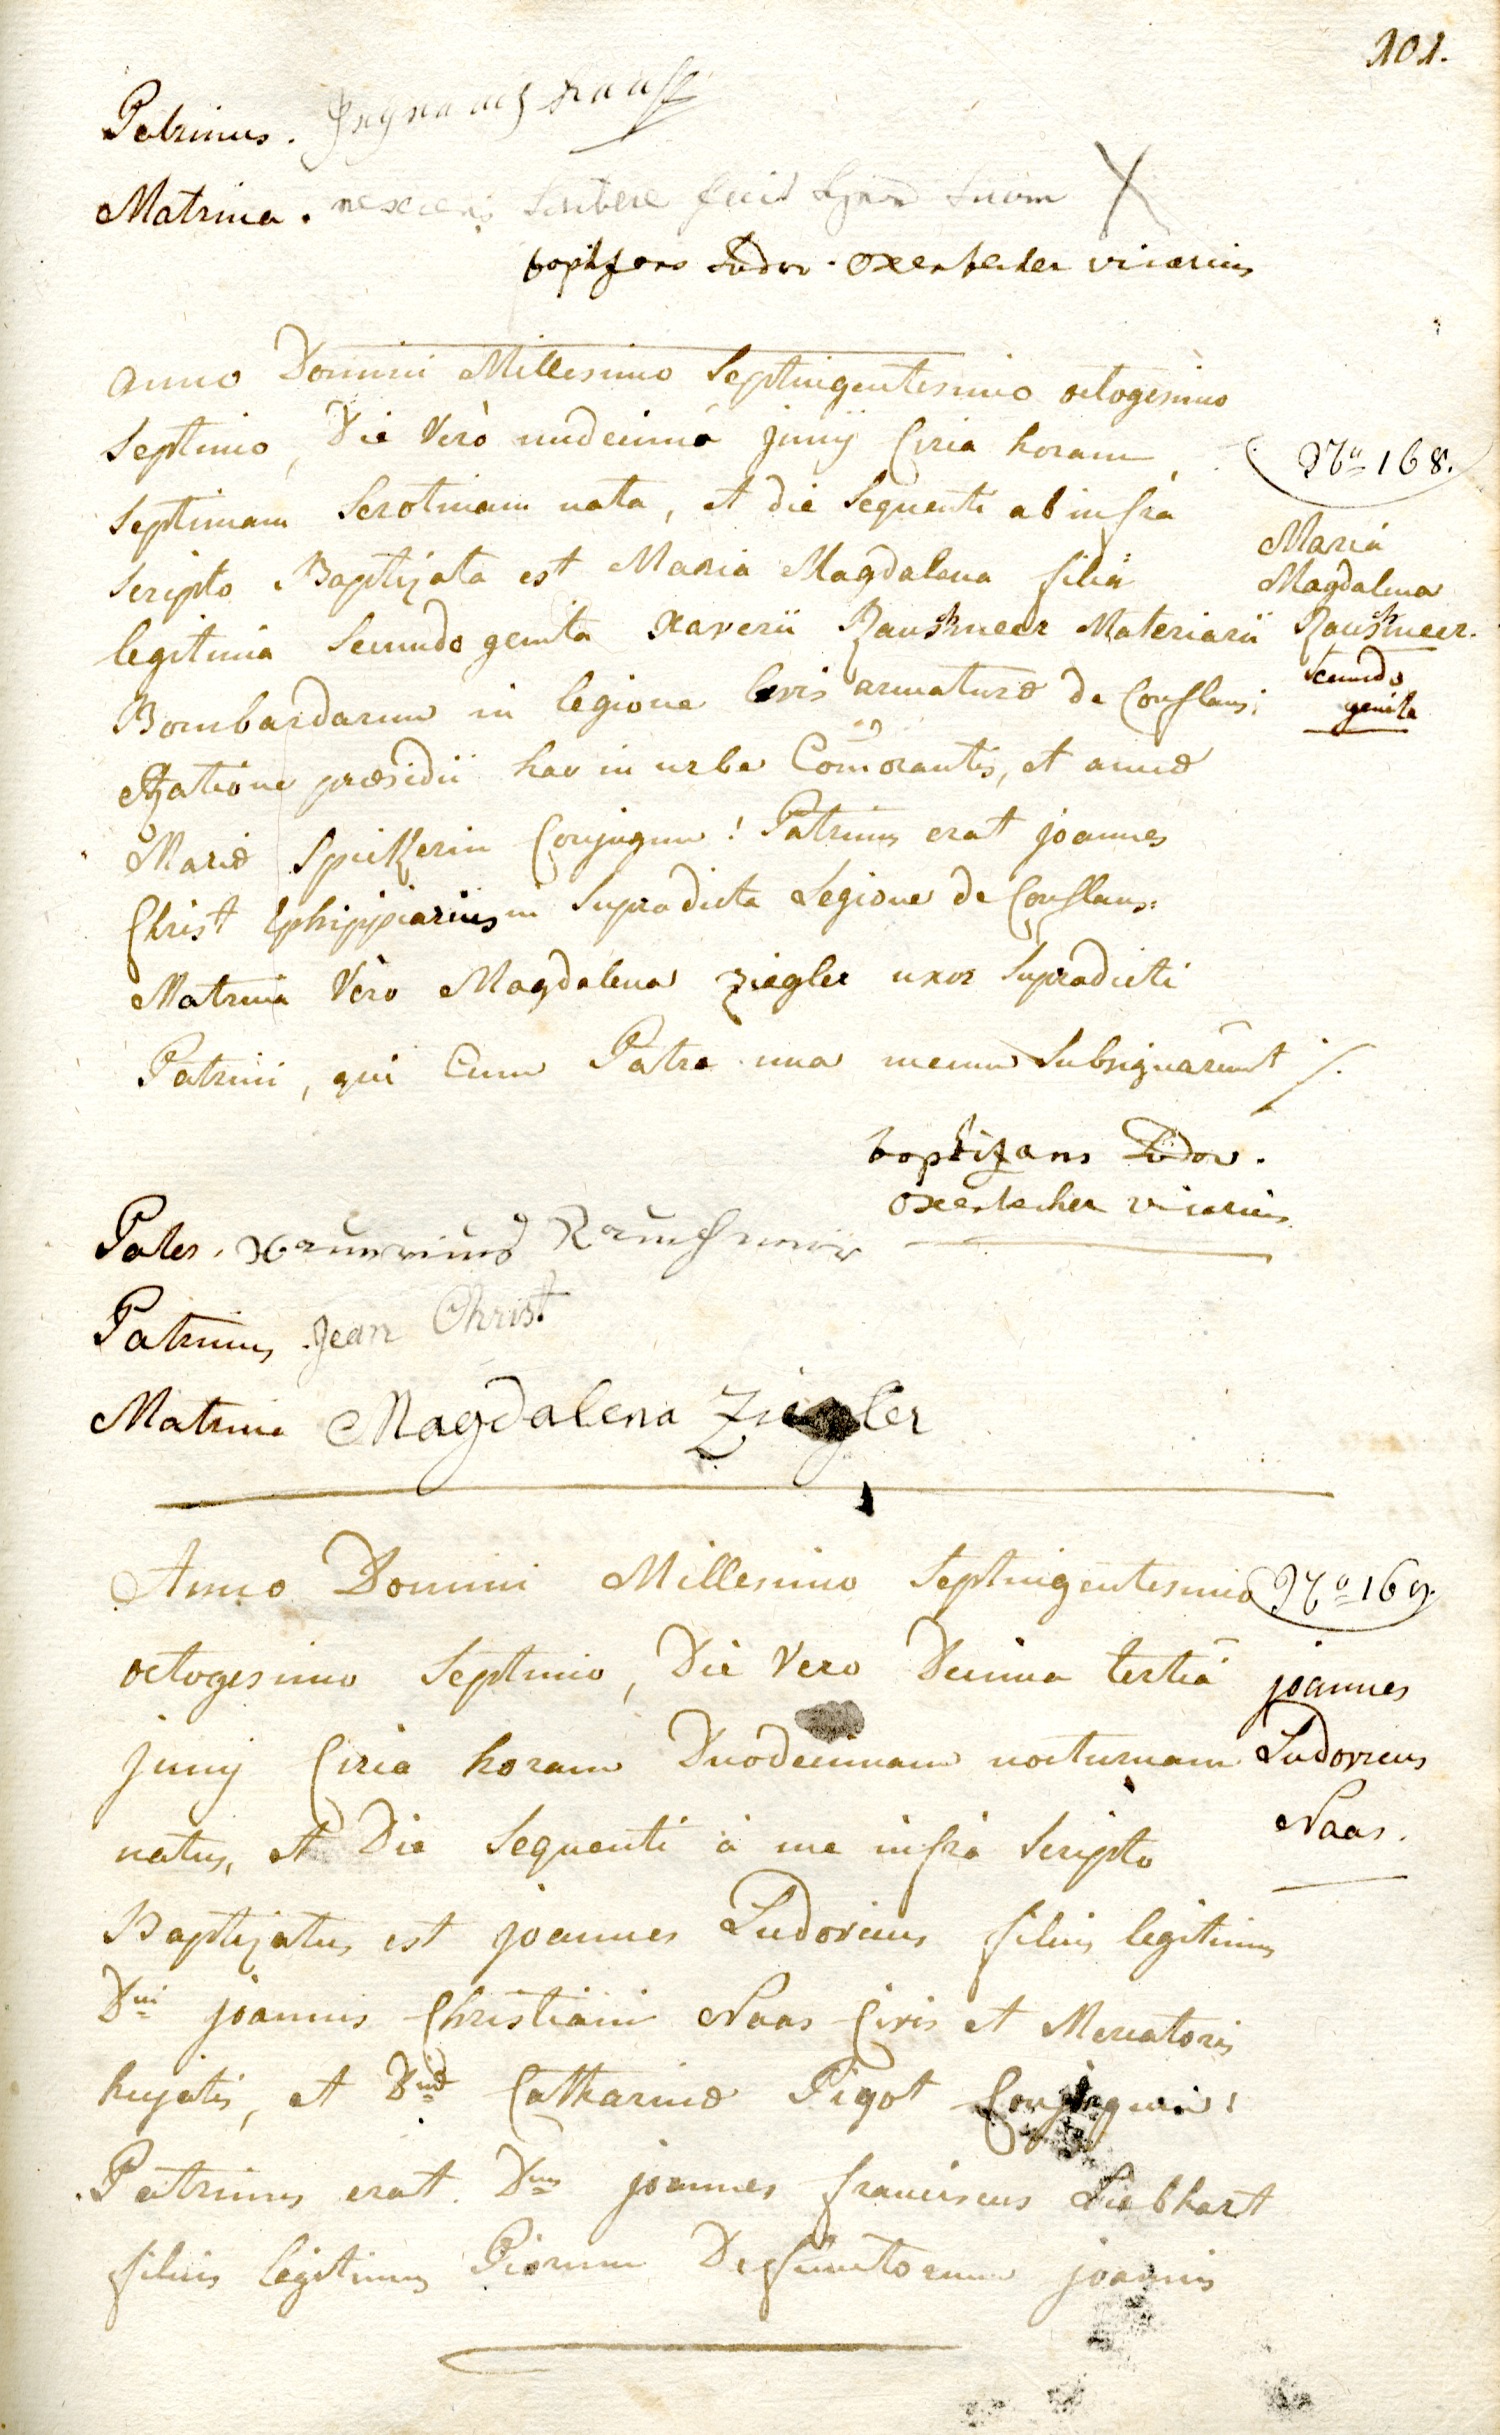 101.
Patrinus.
Matrina. nesciens scribere fecit signum suum X
baptizans Ludov. oxenbecher vicarius
anno Domini Millesimo Septingentesimo octogesimo
Septimo, Die Verò undecimâ junij Circa horam
Septimam Serotinam nata, et die Sequenti ab infrà
Scripto Baptizata est Maria Magdalena filia
legitima Secundo genita Xaverii Raushmeer Materiarii
Bombardarum in legione levis armaturæ de Conflans;
Ratione præsidii hac in urbe Com̄orantis, et annæ
Mariæ Spitzerin Conjugum! Patrinus erat joannes
Christ Ephippiarius in Supradicta Legione de Conflans:
Matrina Vèro Magdalena Ziegler uxor Supradicti
Patrini, qui Cum Patre una mecum Subsignarūnt /.
baptizans Ludov.
oxenbecher vicarius
Pater. Xauverius Rauschmeir
Patrinus Jean Christ
Matrina Magdalena Ziegler
No 168.
Maria
Magdalena
Raushmeer.
Secundo
genita
Anno Domini Millesimo Septingentesimo
octogesimo Septimo, Die Vero Decima tertiâ
junij Circa horam Duodecimam nocturnam
natus, et Die Sequenti à me infrà Scripto
Baptizatus est joannes Ludovicus filius legitimus
Dni joannis Christiani Naas Civis et Mercatoris
hujatis, et Dnæ Catharinæ Pigot Conjugum!
Patrinus erat Dnus joannes franciscus Liebhart
filius legitimus Piorum Defunctorum joannis
No 169.
joannes
Ludovicus
Naas.